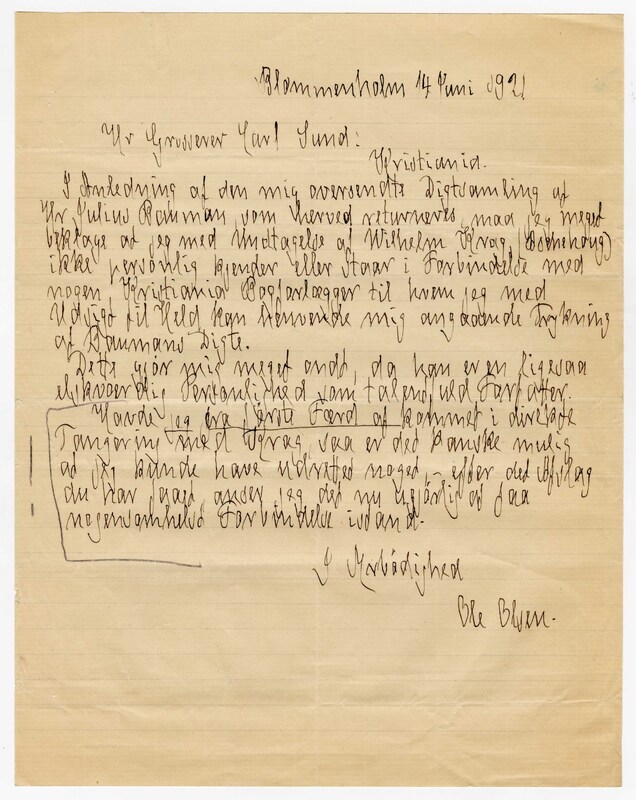 Blommenholm 14 Juni 1921
Hr Grosserer Carl Sund:
Kristiania.
I Anledning af den mig oversendte Digtsamling af
Hr Julius Bauman, som herved returneres, maa jeg meget
beklage at jeg med Undtagelse af Wilhelm Krag, (Aschehoug)
ikke personlig kjender eller staar i Forbindelse med
nogen Kristiania Bogforlægger til hvem jeg med
Udsigt til Held kan henvende mig angaaende Trykning
af Baumans Digte.
Dette gjør mig meget ondt, da han er en ligesaa
elskværdig Personlighed som talentfuld Forfatter.
Havde jeg fra første Færd af kommet i direkte
Tangering med Krag, saa er det kanske mulig
at jeg kunde have udrettet noget, - efter det Afslag
du har faaet anser jeg det nu ugjørligt at faa
nogensomhelst Forbindelse istand.
I Ærbødighed
Ole Olsen.